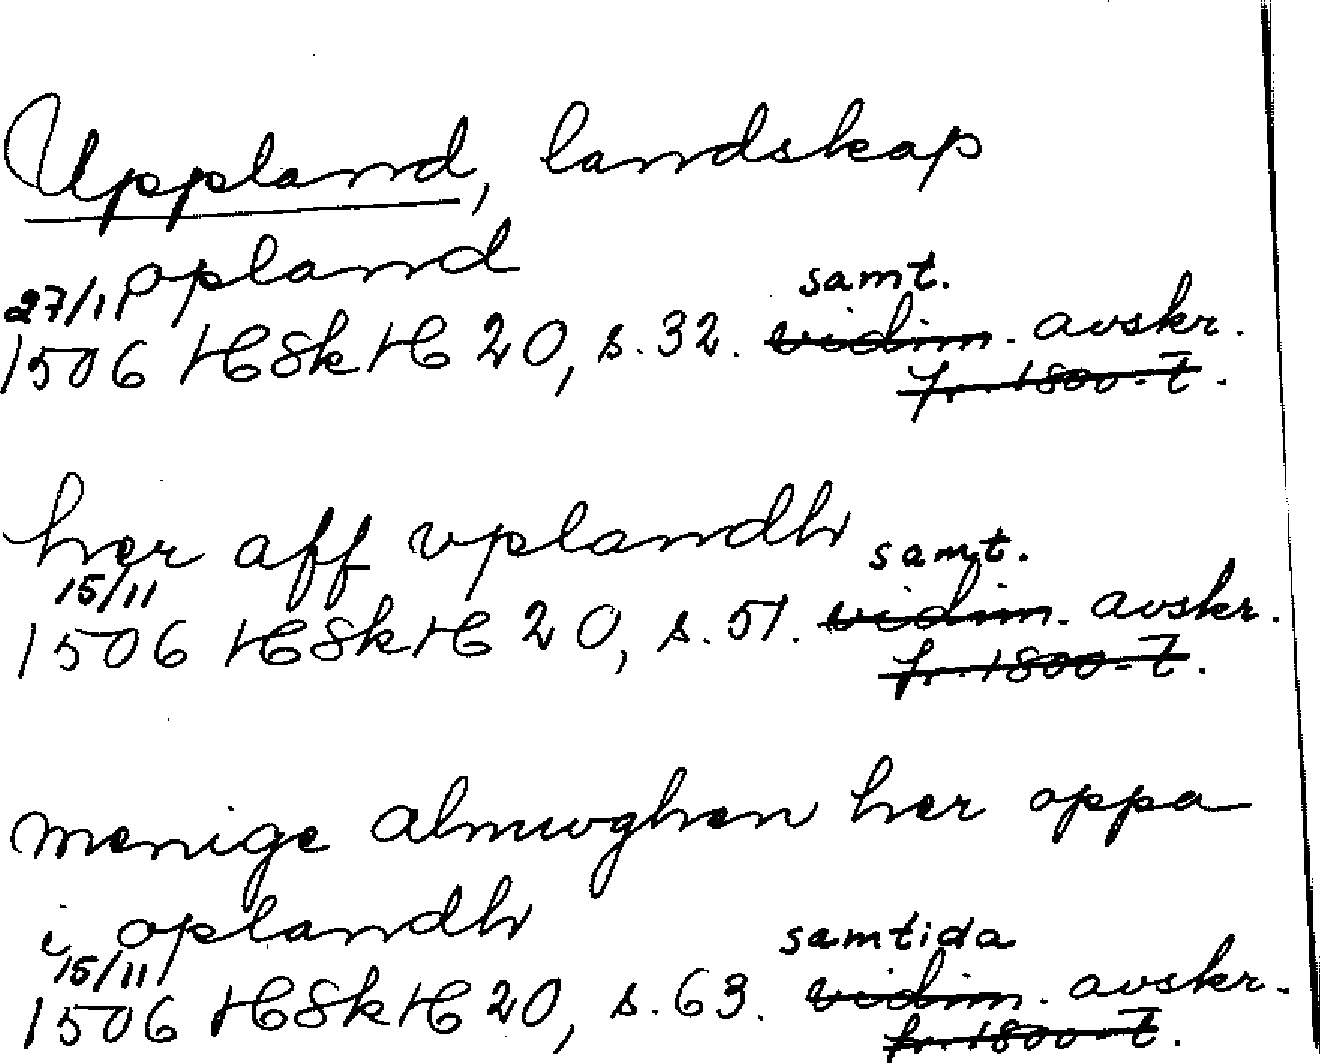 Uppland, landskap
opland
27/1 samt.
1506 HSkH 20, s. 32. vidim. avskr.
fr. 1800-t.
her aff vplandh
15/11 samt.
1506 HSkH 20, s. 51. vidim. avskr.
fr. 1800-t.
menige almwghen her oppa
i oplandh
15/11 samtida
1506 HSkH 20, s. 63. vidim. avskr.
fr. 1800-t.